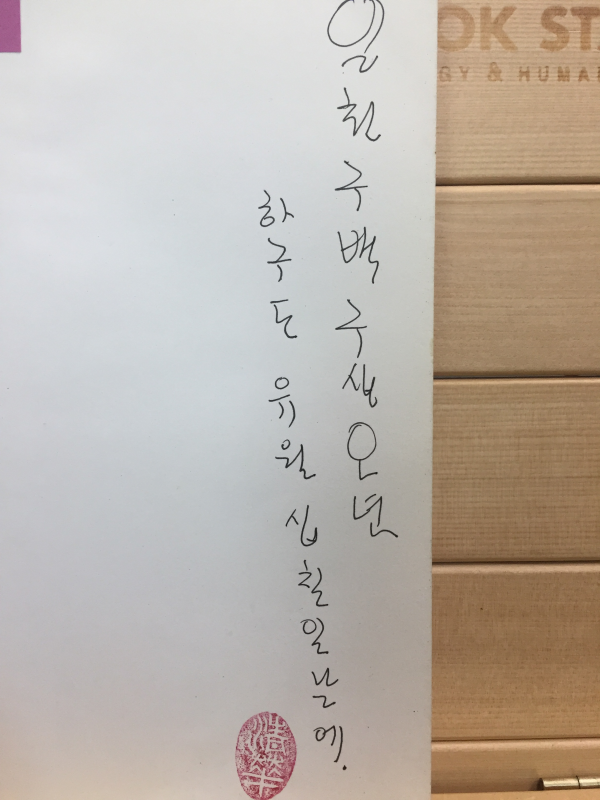 일천구백구십오년
하구도 유월 십칠일날에.
OK STA
GY & HUMA